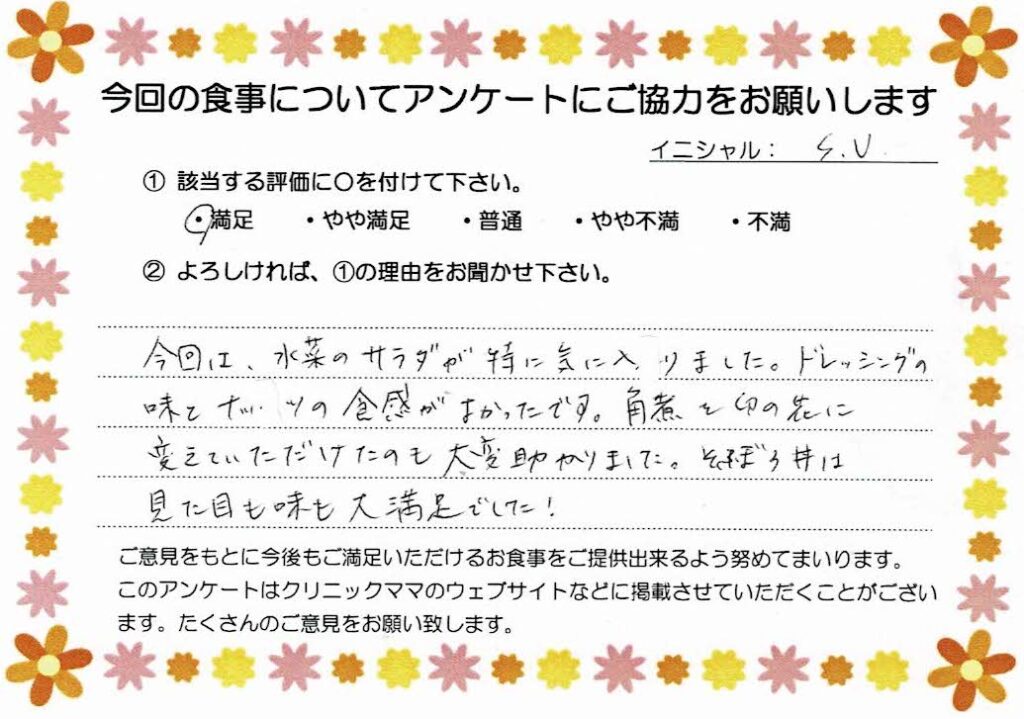 今回の食事についてアンケートにご協力をお願いします
イニシャル: S.U.
① 該当する評価に〇を付けて下さい。
・満足 ・やや満足 ・普通 ・やや不満 ・不満
② よろしければ、①の理由をお聞かせ下さい。
今回は、水菜のサラダが特に気に入りました。ドレッシングの
味とナッツの食感がよかったです。角煮を卵の先に
変えていただけたのも大変助かりました。そぼろ丼は
見た目も味も大満足でした!
ご意見をもとに今後もご満足いただけるお食事をご提供出来るよう努めてまいります。
このアンケートはクリニックママのウェブサイトなどに掲載させていただくことがござい
ます。たくさんのご意見をお願い致します。